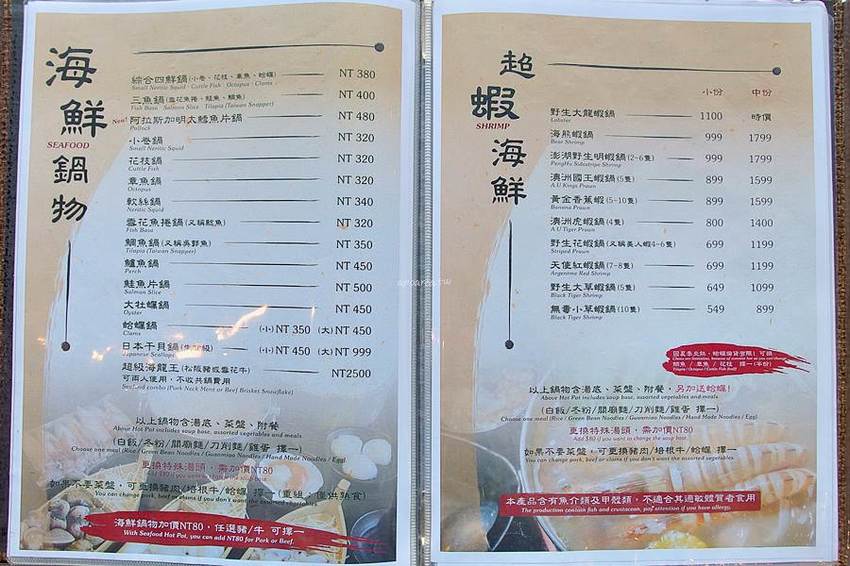 海鮮鍋物
SEAFOOD
綜合四鮮鍋(小卷、花枝、章魚、蛤蠣) NT 380
Small Neritic Squid · Cuttle Fish · Octopus · Clams
三魚鍋(雪花魚捲、鮭魚、鯛魚) NT 400
Fish Bass · Salmon Slice · Tilapia (Taiwan Snapper)
New! 阿拉斯加明太鱈魚片鍋 NT 480
Pollock
小卷鍋 NT 320
Small Neritic Squid
花枝鍋 NT 320
Cuttle Fish
章魚鍋 NT 320
Octopus
軟絲鍋 NT 340
Neritic Squid
雪花魚捲鍋(又稱鯰魚) NT 320
Fish Bass
鯛魚鍋(又稱吳郭魚) NT 350
Tilapia (Taiwan Snapper)
鱸魚鍋 NT 450
Perch
鮭魚片鍋 NT 500
Salmon Slice
大牡蠣鍋 NT 450
Oyster
蛤蠣鍋 (小) NT 350 (大) NT 450
Clams
日本干貝鍋 (小) NT 450 (大) NT 999
Japanese Scallops
超級海龍王(松阪豬或雪花牛) NT2500
可兩人使用，不收共鍋費用
Seafood combo (Pork Neck Meat or Beef Brisket Snowflake)
以上鍋物含湯底、菜盤、附餐
Above Hot Pot includes soup base, assorted vegetables and meals
(白飯/冬粉/關廟麵/刀削麵/雞蛋 擇一)
Choose one meal (Rice / Green Bean Noodles / Guanmiao Noodles / Hand Made Noodles / Egg)
更換特殊湯頭，需加價NT80
Add $80 if you want to change the soup base.
如果不要菜盤，可更換豬肉/培根牛/蛤蠣 擇一
You can change pork, beef or clams if you don't want the assorted vegetables
海鮮鍋物加價NT80，任選豬/牛 可擇一
With Seafood Hot Pot, you can add NT80 for Pork or Beef.
超蝦海鮮
SHRIMP
小份 中份
野生大龍蝦鍋 1100 時價
Lobster
海熊蝦鍋 999 1799
Bear Shrimp
澎湖野生明蝦鍋(2~6隻) 999 1799
PengHu Sidestripe Shrimp
澳洲國王蝦鍋(5隻) 899 1599
A.U Kings Prawn
黃金香蕉蝦(5~10隻) 899 1599
Banana Prawn
澳洲虎蝦鍋(4隻) 800 1400
A.U Tiger Prawn
野生花蝦鍋(又稱美人蝦4~6隻) 699 1199
Striped Prawn
天使紅蝦鍋(7~8隻) 699 1199
Argentine Red Shrimp
野生大草蝦鍋(5隻) 649 1099
Black Tiger Shrimp
無毒小草蝦鍋(10隻) 549 899
Black Tiger Shrimp
鯛魚 / 章魚 / 花枝 擇一(半份)
以上鍋物含湯底、菜盤、附餐，另加送蛤蠣!
Above Hot Pot includes soup base, assorted vegetables and meals
(白飯/冬粉/關廟麵/刀削麵/雞蛋 擇一)
Choose one meal (Rice / Green Bean Noodles / Guanmiao Noodles / Hand Made Noodles / Egg)
更換特殊湯頭，需加價NT80
Add $80 if you want to change the soup base.
如果不要菜盤，可更換豬肉/培根牛/蛤蠣 擇一
You can change pork, beef or clams if you don't want the assorted vegetables.
本產品含有魚介類及甲殼類，不適合其過敏體質者食用
The production contain fish and crustacean, pay attention if you have allergy.